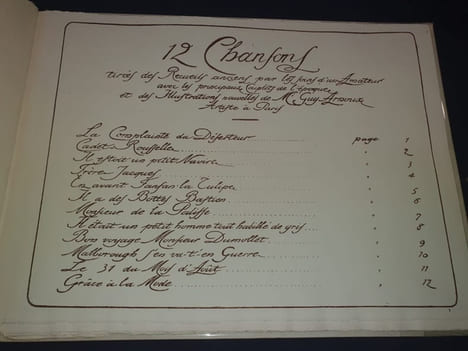 12 Chansons
tirées des Recueils anciens par les soins d'un Amateur
avec les principaux Couplets de l'époque
et des Illustrations nouvelles de Mr Guy Arnoux
Artiste à Paris
La Complainte du Déserteur page 1
Cadet-Rousselle " 2
Il estoit un petit Navire " 3
Frère Jacques " 4
En avant Fanfan la Tulipe " 5
Il a des Bottes Bastien " 6
Monsieur de la Palisse " 7
Il était un petit homme tout habillé de gris " 8
Bon voyage Monsieur Dumollet " 9
Malbrough s'en va-t-en Guerre " 10
Le 31 du Mois d'Août " 11
Grâce à la Mode " 12